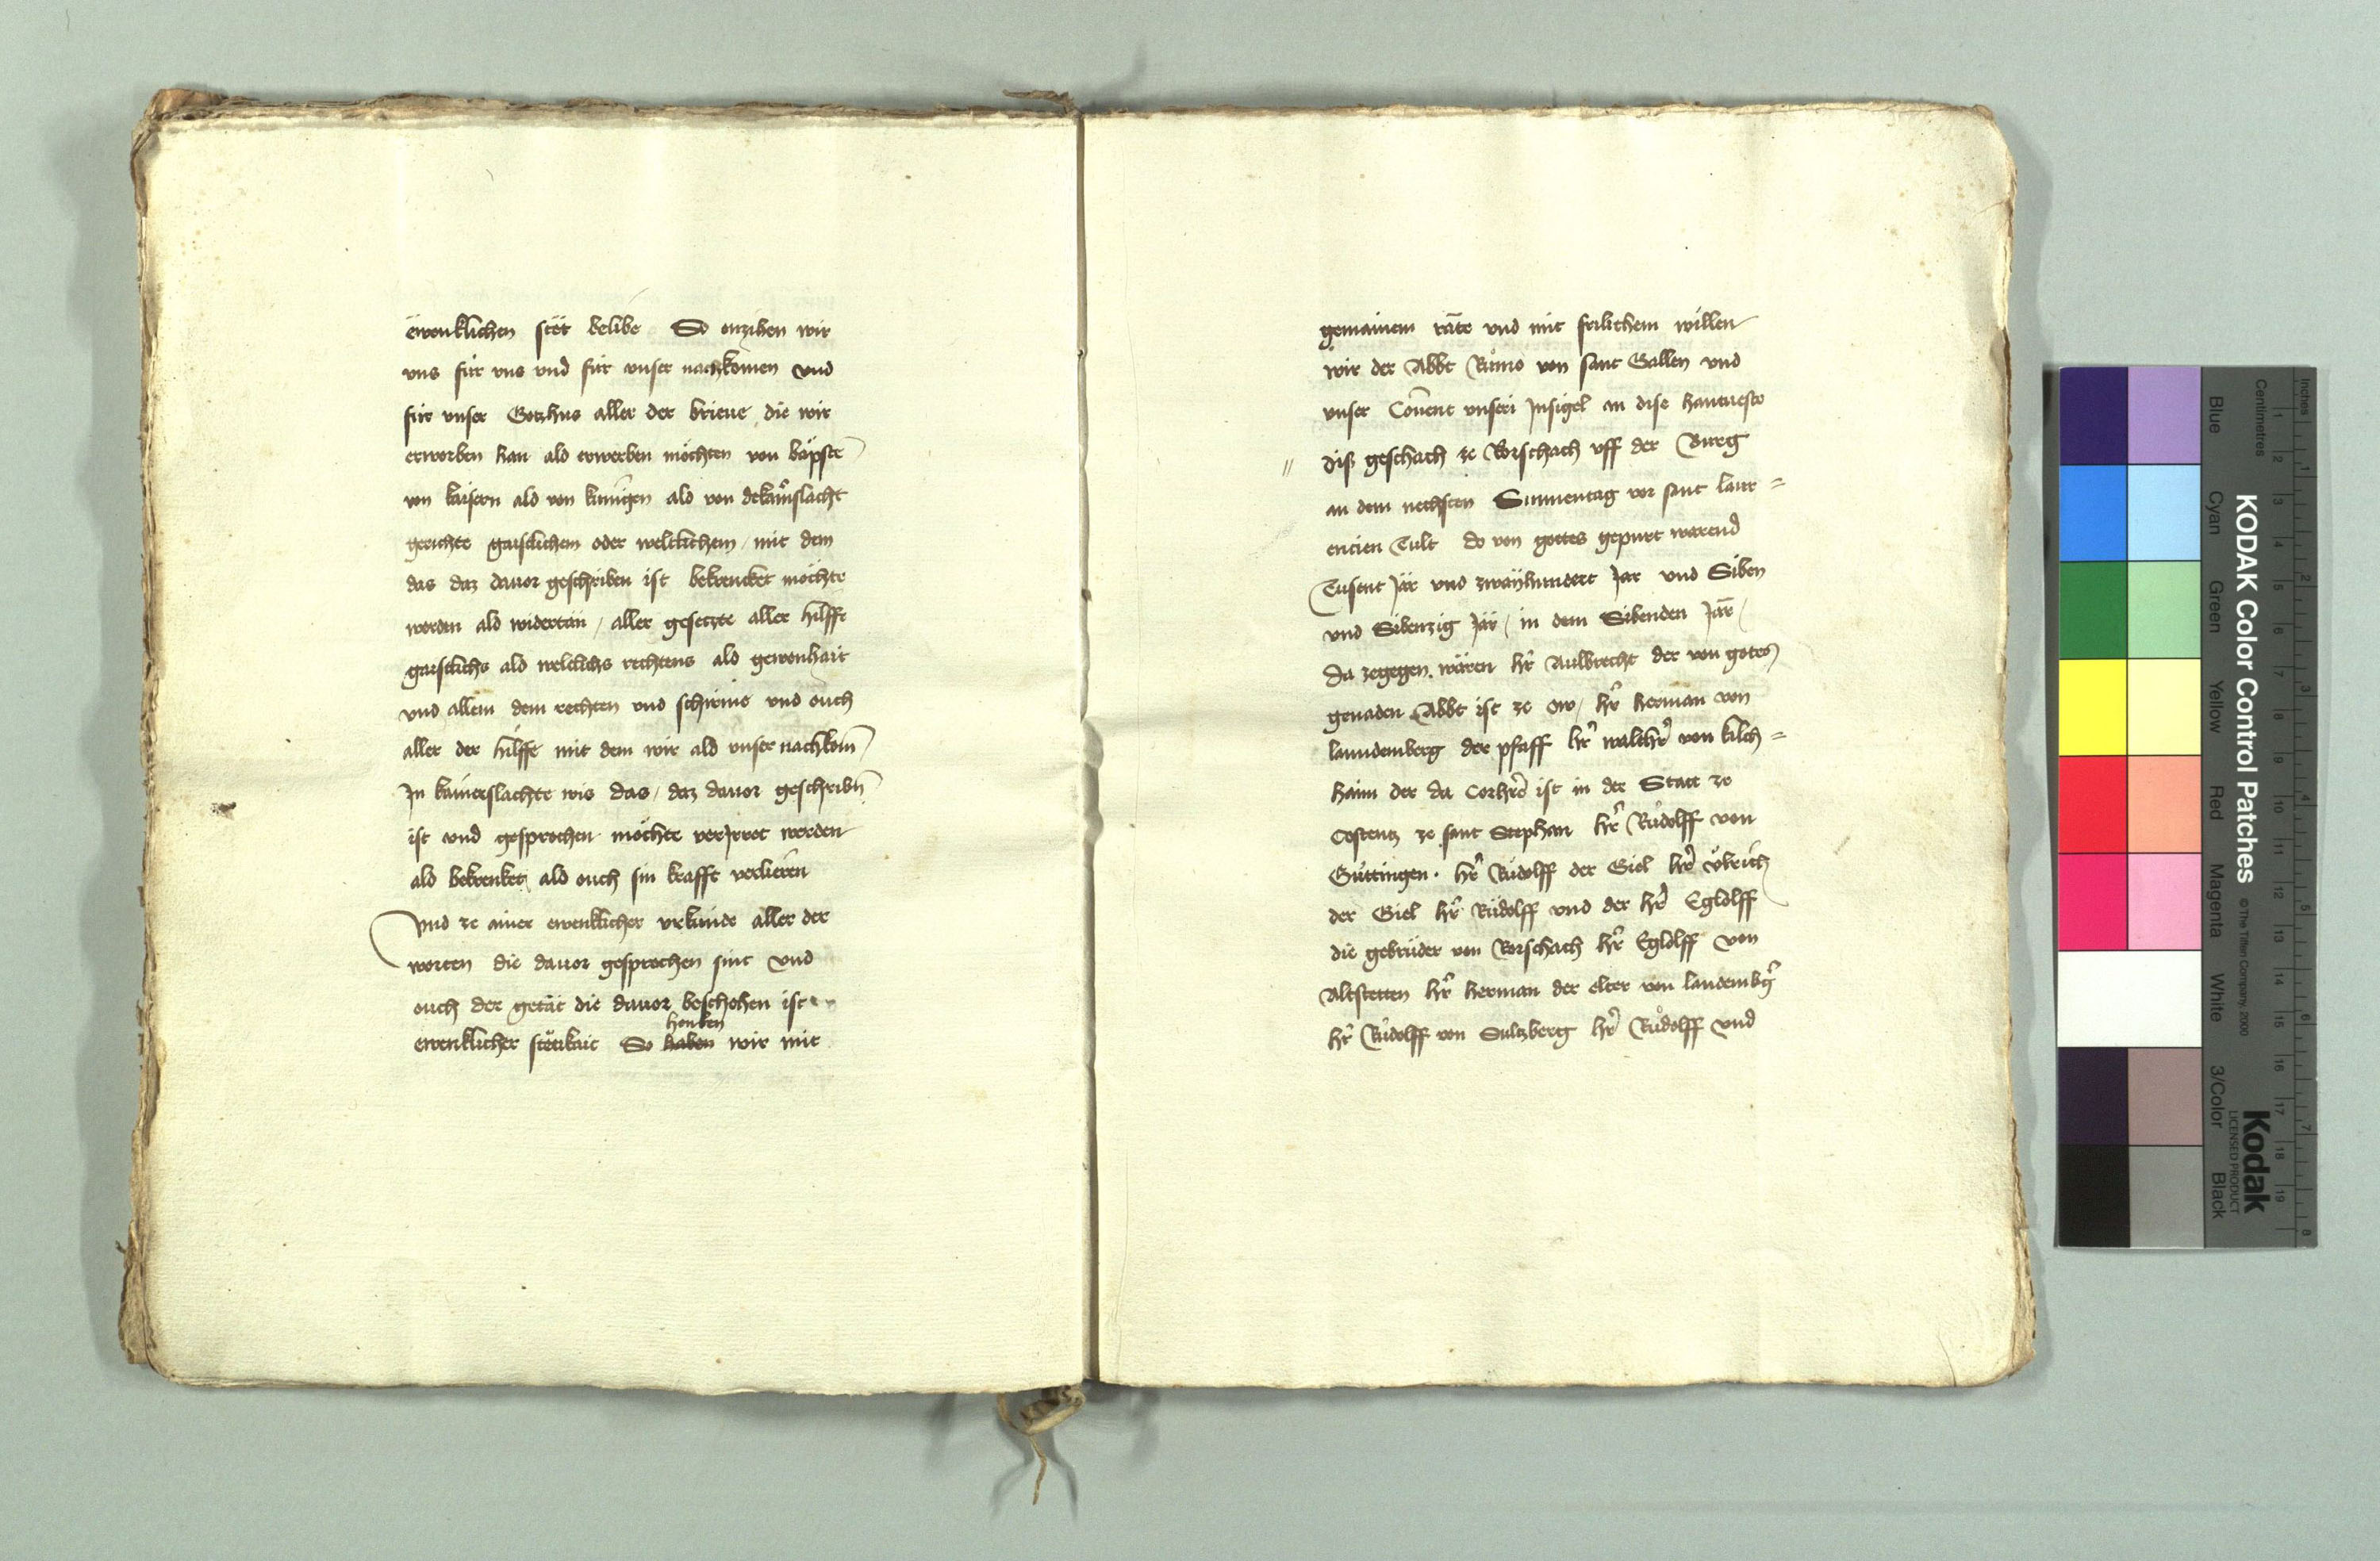 ëwenklichen stët belibe So enzihen wir
vns für vns vnd für vnser nachkomen vnd
für vnser Gotzhus aller der brieue die wir
erworben han ald erwerben möchten von bäpste
von kaisern ald von künigen ald von dekainslacht
gerichte gaistlichem oder weltlichem / mit dem
das daz dauor geschriben ist bekrencket möchte
werden ald widertän / aller gesetzte aller hilffe
gaistlichs ald weltlichs rechtens ald gewonhait
vnd allem dem rechten vnd schirme vnd ouch
aller der hilffe mit dem wir ald vnser nachkom̄
Jn kainerslachte wis das / daz dauor geschribn̄
ist vnd gesprochen möchte verJrret werden
ald bekrenket ald ouch sin krafft verlieren
Vnd ze ainer ewenklicher vrkünde aller der
worten die dauor gesprochen sint vnd
ouch der getät die dauor beschehen ist
henken
ewenklicher stëtikait So haben wir mit
gemainem räte vnd mit frilichem willen
wir der Abbt Růmo von sant Gallen vnd
vnser Conuent vnseri Jnsigel an dise hantueste
// diß geschach ze Rorschach vff der Burg
an dem nechsten Sunnentag vor sant laur=
encien Tult do von gottes gepurt warend
Tusent Jär vnd zwayhundert Jar vnd Siben
vnd Sibenzig Jär / in dem Sibenden Jär /
da zegegen wären hr̄ Aulbrecht der von gotes
genaden Abbt ist ze ow / hr̄ herman von
lanndemberg der pfaff hr̄ walthr̄ von kilch=
haim der da Corhr̄e ist in der Statt ze
Costentz ze sant Stephan hr̄ Růdolff von
Güttingen · hr̄ Růdolff der Giel hr̄ Vͦlrich
der Giel hr̄ Růdolff vnd der hr̄ Eglolff
die gebrüder von Rorschach hr̄ Eglolff von
Altstetten hr̄ herman der elter von landembḡ
hr̄ Růdolff von Sultzberg hr̄ Růdolff vnd
KODAK Color Control Patches
© The Tiffen Company, 2000
Kodak
LICENSED PRODUCT
Inches
Centimetres
Blue
Cyan
Green
Yellow
Red
Magenta
White
3/Color
Black
1 2 3 4 5 6 7 8
1 2 3 4 5 6 7 8 9 10 11 12 13 14 15 16 17 18 19